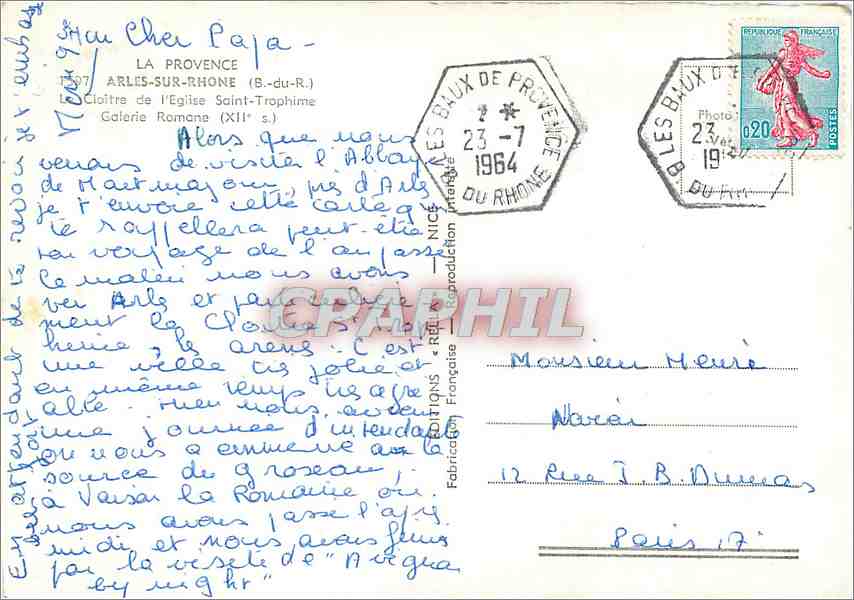 Mon Cher Papa -
LA PROVENCE
ARLES-SUR-RHONE (B.-du-R.)
Le Cloître de l'Eglise Saint-Trophime
Galerie Romane (XIIe s.)
Alors que nous
venons de visiter l'Abbaye
de Montmajour, près d'Arles
je t'envoie cette carte qui
te rappellera peut-être
ton voyage de l'an passé
Ce matin nous avons
vu Arles et particulière
ment le Cloître St Trop
hime, les arènes. C'est
une ville très jolie et
en même temps très agré
able. Hier nous avions
une journée d'intendant
on nous a emmené à la
source du groseau,
à Vaison la Romaine où
nous avons passé l'après
midi et nous avons fini
par la visite de "Avignon
by night"
En attendant de te revoir je t'embrasse
EDITIONS « RELLA » — NICE
Fabrication Française — Reproduction Interdite
LES BAUX DE PROVENCE
23 -7
1964
DU RHONE
LES BAUX D
23
19
DU RH
Photo
REPUBLIQUE FRANÇAISE
0,20
POSTES
CPARPHIL
Monsieur Henri
12 Rue J. B. Dumas
Paris 17